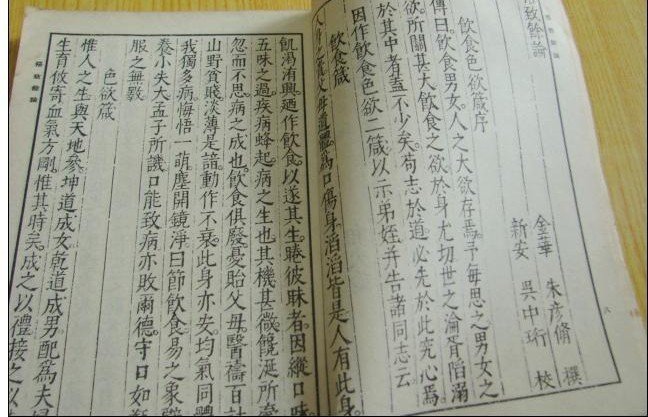 格致餘論
金華 朱彥脩 撰
新安 吳中珩 校
飲食色欲箴序
傳曰飲食男女。人之大欲存焉。予每思之。男女之
欲。所關甚大。飲食之欲。於身尤切。世之淪胥陷溺
於其中者。蓋不少矣。苟志於道。必先於此究心焉。
因作飲食色欲二箴。以示弟姪。并告諸同志云。
飲食箴
人身之貴。父母遺體。為口傷身。滔滔皆是。人有此身。
飢渴洊興。迺作飲食。以遂其生。睠彼昧者。因縱口味。
五味之過。疾病蜂起。病之生也。其機甚微。饞涎所
忽而不思。病之成也。飲食俱廢。憂貽父母。醫禱百計
山野貧賤。淡薄是諳。動作不衰。此身亦安。均氣同體
我獨多病。悔悟一萌。塵開鏡淨。曰節飲食。易之象
養小失大。孟子所譏。口能致病。亦敗爾德。守口如
服之無斁
色欲箴
惟人之生。與天地參。坤道成女。乾道成男。配為夫
生育攸寄。血氣方剛。惟其時矣。成之以禮。接之以
格致餘論